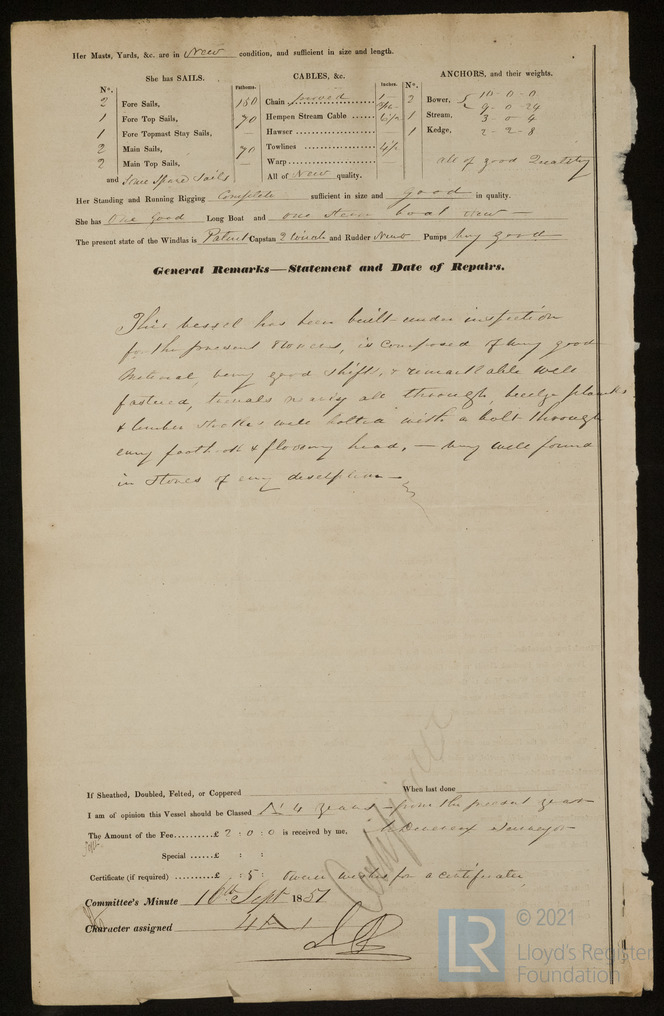 Her Masts, Yards, &c. are in New condition, and sufficient in size and length.
She has SAILS.
CABLES, &c.
ANCHORS, and their weights.
N°.
Fathoms.
Inches.
N°.
2 Fore Sails,
1 Fore Top Sails,
1 Fore Topmast Stay Sails,
2 Main Sails,
2 Main Top Sails,
and Some Spare Sails
150 Chain proved 1
70 Hempen Stream Cable
— Hawser —
70 Towlines 4½
— Warp —
All of New quality.
2 Bower, 10-0-0
9-0-24
1 Stream, 3-0-4
1 Kedge, 2-2-8
all of good Quality
Her Standing and Running Rigging Complete sufficient in size and good in quality.
She has One Good Long Boat and one boat new
The present state of the Windlas is Patent Capstan 2 and Rudder New Pumps Very good
General Remarks—Statement and Date of Repairs.
This vessel has been built under inspection
for the present Owners, is composed of very good
material, very good shifts, & remarkable well
fastened, all through, bilge planks
& limber well bolted with a bolt through
every foothook & flooring head, — very well found
in stores of every description
If Sheathed, Doubled, Felted, or Coppered When last done
I am of opinion this Vessel should be Classed A 4 years from the present year
The Amount of the Fee..........£ 2:0:0 is received by me, Surveyor
Special ......£ : :
Certificate (if required) ..........£ :5: Owner wishes for a certificate
Committee's Minute 16th Sept 1851
Character assigned 4 A 1
© 2021
LR
Lloyd's Register
Foundation